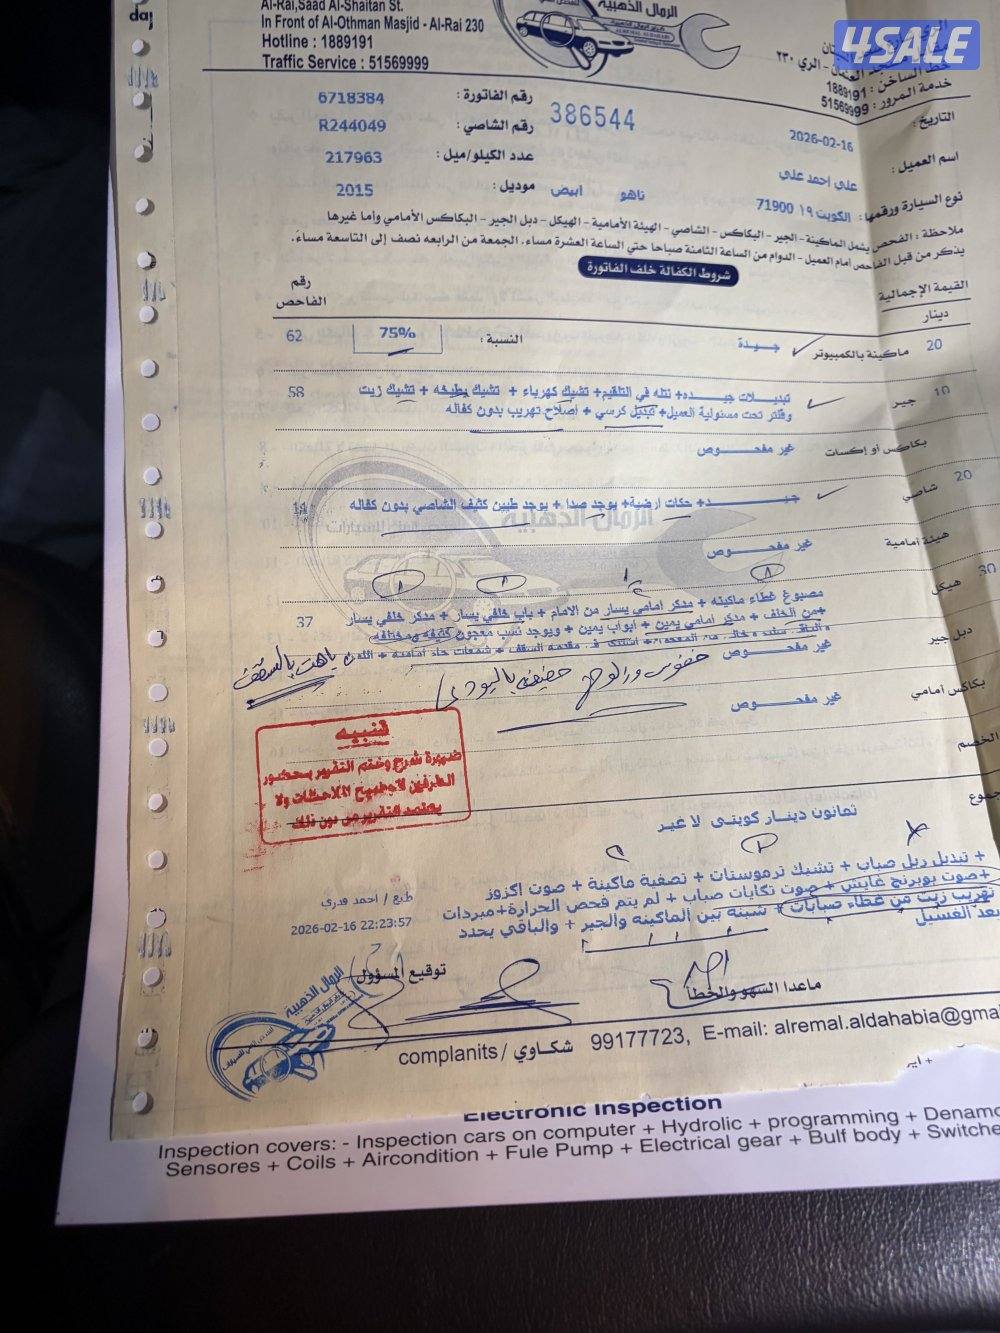 4SALE
Al-Rai,Saad Al-Shaitan St.
In Front of Al-Othman Masjid - Al-Rai 230
Hotline : 1889191
Traffic Service : 51569999
الرمال الذهبية
الري ٢٣٠
خط الساخن : 1889191
خدمة المرور : 51569999
التاريخ : 2026-02-16
386544
رقم الفاتورة : 6718384
رقم الشاصي : R244049
اسم العميل : علي احمد علي
عدد الكيلو/ميل : 217963
نوع السيارة ورقمها : الكويت ١٩ 71900 تاهو ابيض موديل : 2015
ملاحظة : الفحص يشمل الماكينة - الجير - البكاكس - الشاصي - الهيئة الأمامية - الهيكل - دبل الجير - البكاكس الأمامي وأما غيرها
يذكر من قبل الفاحص امام العميل - الدوام من الساعة الثامنة صباحا حتي الساعة العشرة مساء. الجمعة من الرابعه نصف إلى التاسعة مساءً.
شروط الكفالة خلف الفاتورة
القيمة الإجمالية
دينار
رقم الفاحص
20 ماكينة بالكمبيوتر جيدة النسبة : 75% 62
10 جير تبديلات جيده+ نتله في التلقيم+ تشيك كهرباء + تشيك بطيخه + تشيك زيت 58
وفلتر تحت مسئولية العميل+ تبديل كرسي + أصلاح تهريب بدون كفاله
بكاكس أو إكسات غير مفحوص
20 شاصي جيد+ حكات ارضية+ يوجد صدا + يوجد طيين كثيف الشاصي بدون كفاله 11
هيئة أمامية غير مفحوص
30 هيكل مصبوغ غطاء ماكينه + مدكر امامي يسار من الامام + باب خلفي يسار + مدكر خلفي يسار 37
+من الخلف + مدكر امامي يمين + ابواب يمين + ويوجد نسب معجون كثيفه ومختلفه
دبل جير غير مفحوص
باهت بالسقف
بكاكس أمامي غير مفحوص
الخصم
تنبيه
ضرورة شرح وختم التقرير بحضور
الطرفين لتوضيح الملاحظات ولا
يعتمد التقرير من دون ذلك
ثمانون دينار كويتي لا غير
+ تبديل ربل صباب + تشيك ترموستات + تصفية ماكينة + صوت اكزوز
+صوت بوبرنج غايش + صوت تكايات صباب + لم يتم فحص الحرارة+مبردات
تهريب زيت من غطاء صبابات + شبنه بين الماكينه والجير + والباقي يحدد
بعد الغسيل
طبع / احمد قدري
2026-02-16 22:23:57
توقيع المسؤول
ماعدا السهو والخطأ
complanits / شكاوي 99177723, E-mail: alremal.aldahabia@gma
الرمال الذهبية
Electronic Inspection
Inspection covers: - Inspection cars on computer + Hydrolic + programming + Denamo
Sensores + Coils + Aircondition + Fule Pump + Electrical gear + Bulf body + Switche